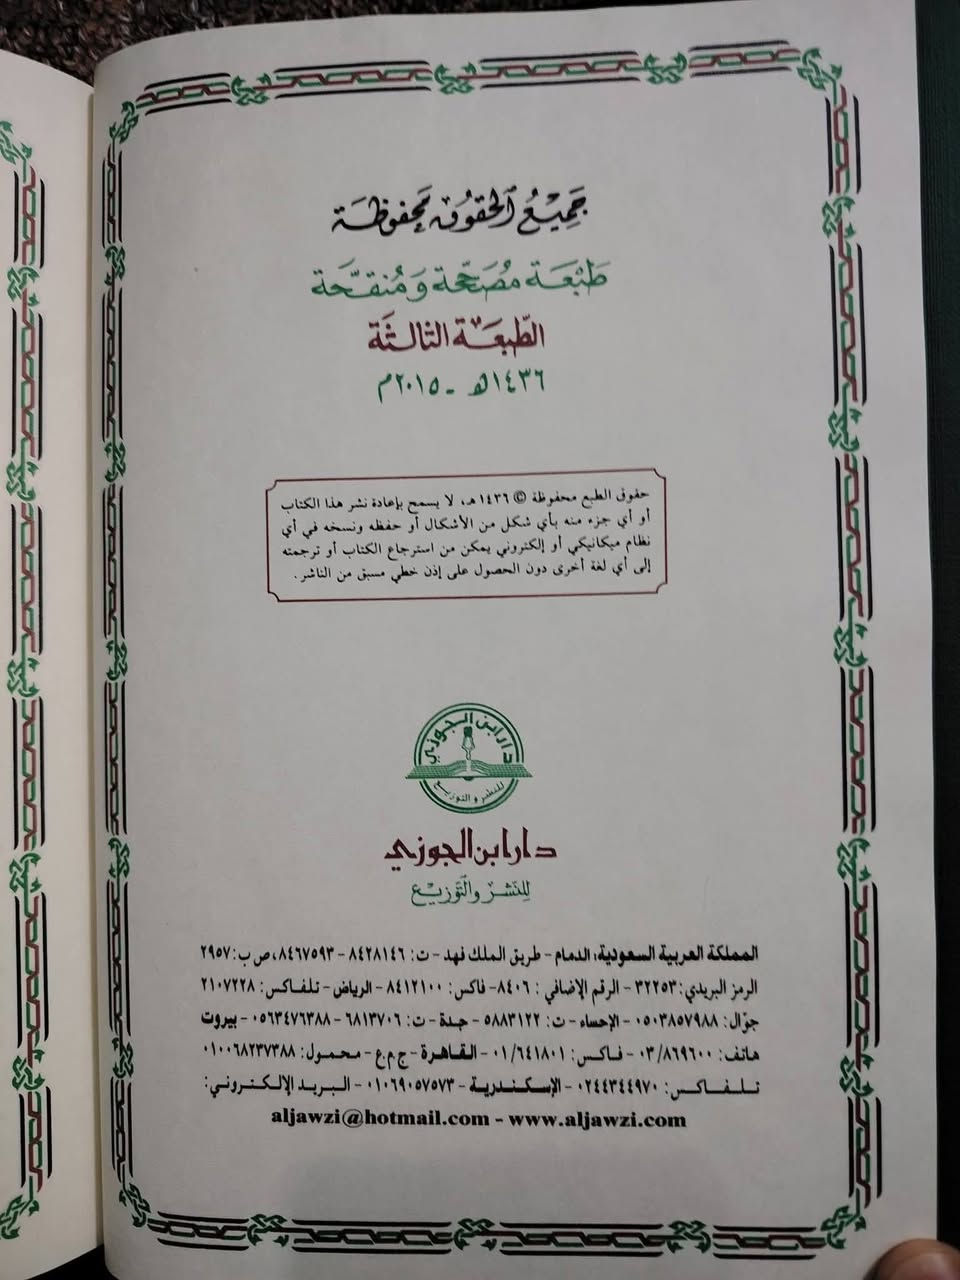 جَمِيْعُ الحُقُوْقِ مَحْفُوظَة
طَبْعَة مُصَحَّحَة وَمُنَقَّحَة
الطَّبعَة الثَّالِثَة
١٤٣٦هـ - ٢٠١٥م
حقوق الطبع محفوظة © ١٤٣٦هـ، لا يسمح بإعادة نشر هذا الكتاب
أو أي جزء منه بأي شكل من الأشكال أو حفظه ونسخه في أي
نظام ميكانيكي أو إلكتروني يمكن من استرجاع الكتاب أو ترجمته
إلى أي لغة أخرى دون الحصول على إذن خطي مسبق من الناشر.
دار ابن الجوزي
للنشر والتوزيع
دار ابن الجوزي
لِلنَّشْرِ والتَّوَزِيْع
المملكة العربية السعودية: الدمام - طريق الملك فهد - ت: ٨٤٢٨١٤٦ - ٨٤٦٧٥٩٣، ص ب: ٢٩٥٧
الرمز البريدي: ٣٢٢٥٣ - الرقم الإضافي : ٨٤٠٦ - فاكس: ٨٤١٢١٠٠ - الرياض - تلفاكس: ٢١٠٧٢٢٨
جوّال: ٠٥٠٣٨٥٧٩٨٨ - الإحساء - ت: ٥٨٨٣١٢٢ - جدة - ت: ٦٨١٣٧٠٦ - ٠٥٦٣٤٧٦٣٨٨ - بيروت
هاتف: ٠٣/٨٦٩٦٠٠ - فاكس: ٠١/٦٤١٨٠١ - القاهرة - ج م ع - محمول: ٠١٠٠٦٨٢٣٧٣٨٨
تلفاكس: ٠٢٤٤٣٤٤٩٧٠ - الإسكندرية - ٠١٠٦٩٠٥٧٥٧٣ - البريد الإلكتروني:
aljawzi@hotmail.com - www.aljawzi.com